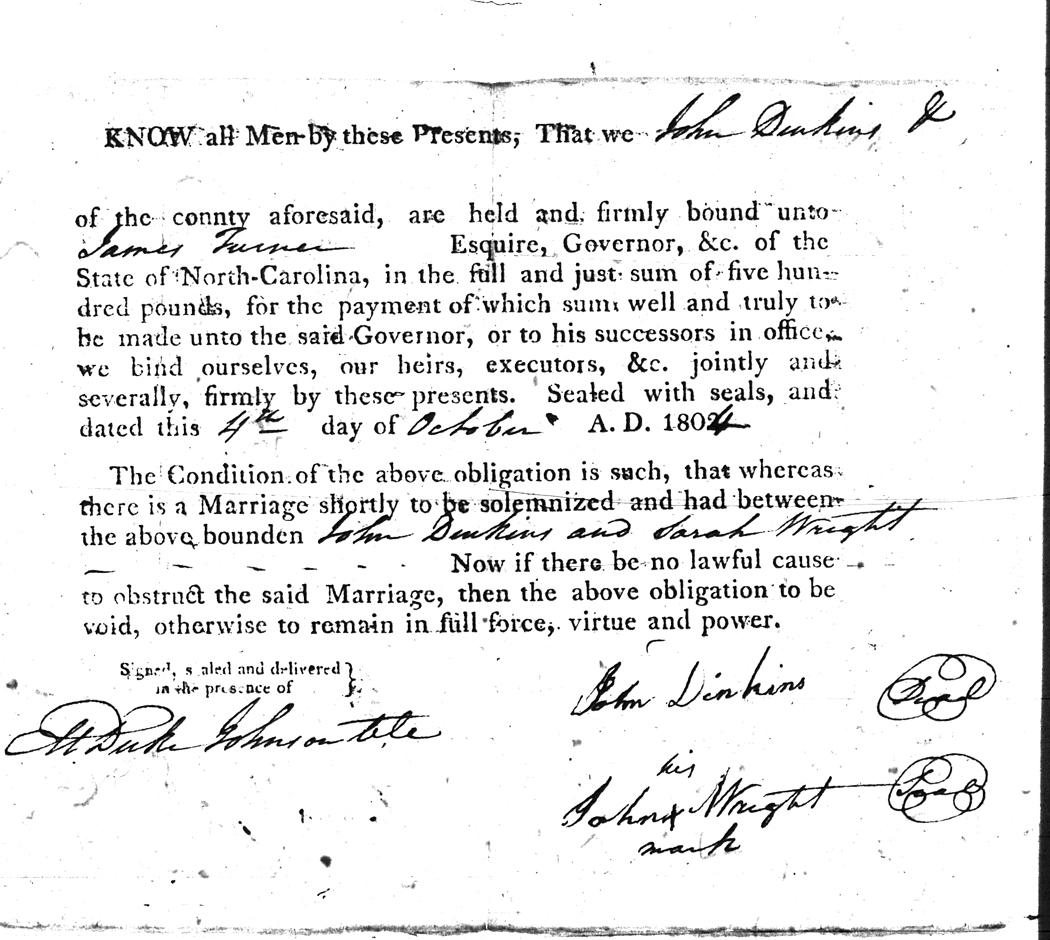 KNOW all Men by these Presents, That we John Dinkins &
of the connty aforesaid, are held and firmly bound unto
James Turner Esquire, Governor, &c. of the
State of North-Carolina, in the full and just sum of five hun-
dred pounds, for the payment of which sum well and truly to
be made unto the said Governor, or to his successors in office,
we bind ourselves, our heirs, executors, &c. jointly and
severally, firmly by these presents. Sealed with seals, and
dated this 4th day of October A. D. 1804
The Condition of the above obligation is such, that whereas
there is a Marriage shortly to be solemnized and had between
the above bounden John Dinkins and Sarah Wright
Now if there be no lawful cause
to obstruct the said Marriage, then the above obligation to be
void, otherwise to remain in full force, virtue and power.
Signed, sealed and delivered }
in the presence of }
John Dinkins Seal
Duke Johnston
his
John x Wright Seal
mark